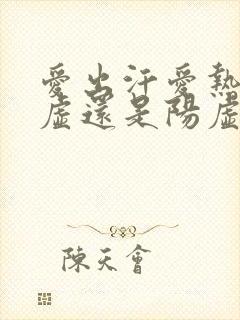 愛出汗愛熱
虛還是陽虛
陳天會